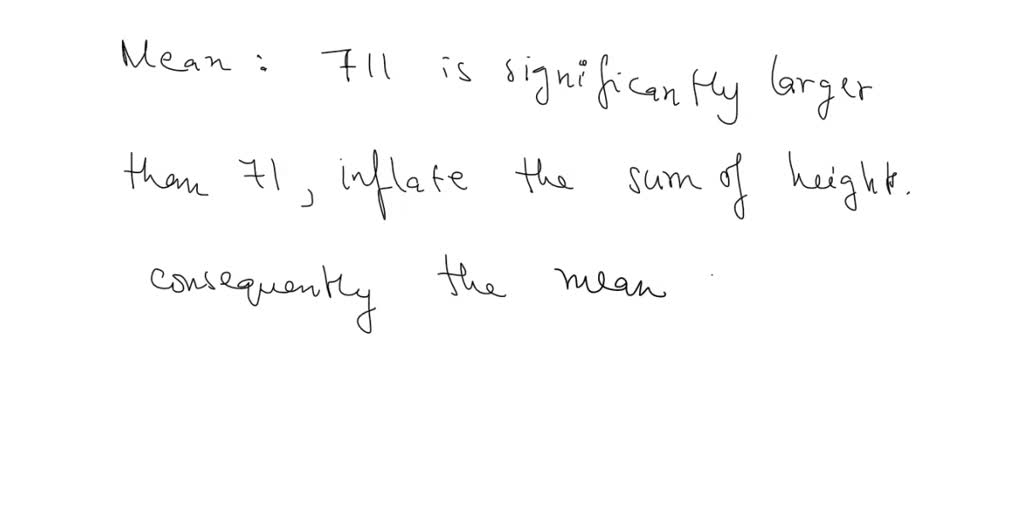 Mean : 711 is significantly larger
than 71, inflate the sum of height.
consequently the mean